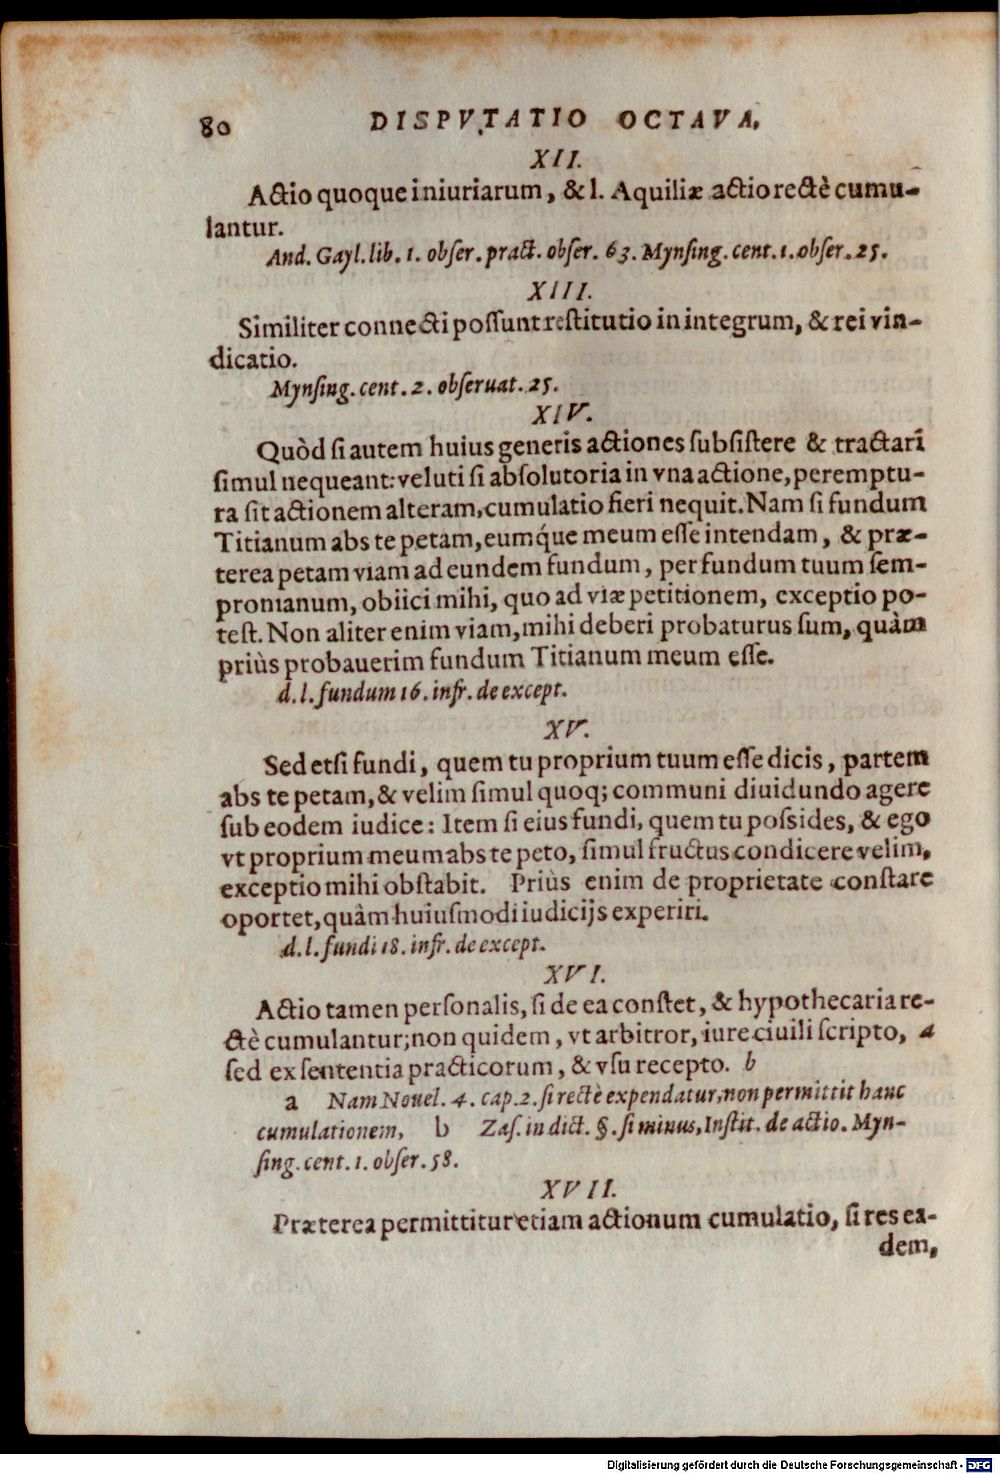 80 DISPVTATIO OCTAVA.
XII.
Actio quoque iniuriarum, & l. Aquiliæ actio rectè cumu-
lantur.
And. Gayl. lib. 1. obſer. pract. obſer. 63. Mynſing. cent. 1. obſer. 25.
XIII.
Similiter connecti poſſunt reſtitutio in integrum, & rei vin-
dicatio.
Mynſing. cent. 2. obſeruat. 25.
XIV.
Quòd ſi autem huius generis actiones ſubſiſtere & tractari
ſimul nequeant: veluti ſi abſolutoria in vna actione, peremptu-
ra ſit actionem alteram, cumulatio fieri nequit. Nam ſi fundum
Titianum abs te petam, eumq́ue meum eſſe intendam, & præ-
terea petam viam ad eundem fundum, per fundum tuum ſem-
pronianum, obiici mihi, quo ad viæ petitionem, exceptio po-
teſt. Non aliter enim viam, mihi deberi probaturus ſum, quàm
priùs probauerim fundum Titianum meum eſſe.
d. l. fundum 16. infr. de except.
XV.
Sed etſi fundi, quem tu proprium tuum eſſe dicis, partem
abs te petam, & velim ſimul quoq; communi diuidundo agere
ſub eodem iudice: Item ſi eius fundi, quem tu poſsides, & ego
vt proprium meum abs te peto, ſimul fructus condicere velim,
exceptio mihi obſtabit. Priùs enim de proprietate conſtare
oportet, quàm huiuſmodi iudicijs experiri.
d. l. fundi 18. infr. de except.
XVI.
Actio tamen perſonalis, ſi de ea conſtet, & hypothecaria re-
ctè cumulantur; non quidem, vt arbitror, iure ciuili ſcripto, a
ſed ex ſententia practicorum, & vſu recepto. b
a Nam Nouel. 4. cap. 2. ſi rectè expendatur, non permittit hanc
cumulationem, b Zaſ. in dict. §. ſi minus, Inſtit. de actio. Myn-
ſing. cent. 1. obſer. 58.
XVII.
Præterea permittitur etiam actionum cumulatio, ſi res ea-
dem,
Digitalisierung gefördert durch die Deutsche Forschungsgemeinschaft - DFG